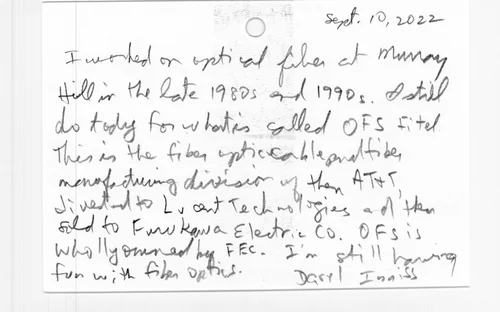 Sept. 10, 2022
I worked on optical fiber at Murray
Hill in the late 1980s and 1990s. I still
do today for what is called OFS Fitel
This is the fiber optic cable and fiber
manufacturing division of then AT&T,
divested to Lucent Technologies and then
sold to Furukawa Electric Co. OFS is
wholly owned by FEC. I'm still having
fun with fiber optics. Daryl Inniss